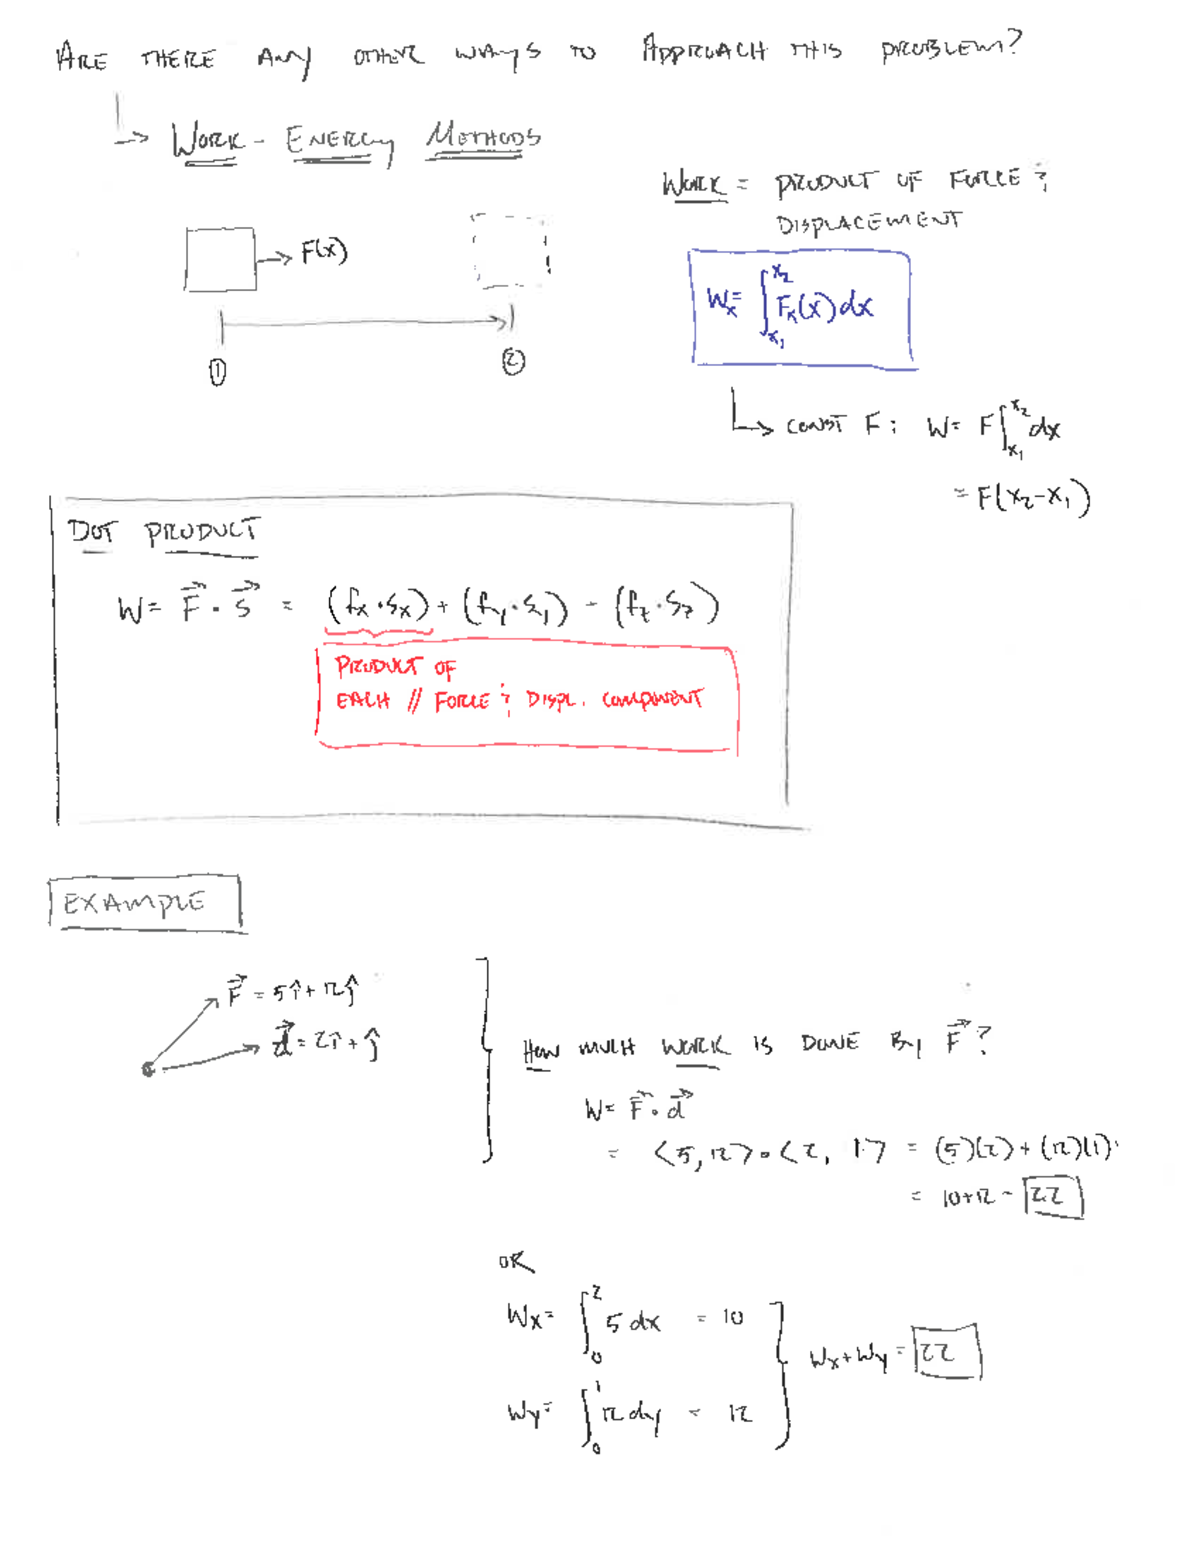 ARE THERE ANY OTHER WAYS TO APPROACH THIS PROBLEM?
↳ WORK - ENERGY METHODS
WORK = PRODUCT OF FORCE &
DISPLACEMENT
→ F(x)
Wx = ∫_{x₁}^{x₂} Fx(x) dx
① ②
↳ CONST F: W = F∫_{x₁}^{x₂} dx
= F(x₂-x₁)
DOT PRODUCT
W = F⃗ · s⃗ = (fx·sx) + (fy·sy) - (fz·sz)
PRODUCT OF
EACH // FORCE & DISPL. COMPONENT
EXAMPLE
F⃗ = 5î + 12ĵ
d⃗ = 2î + ĵ
HOW MUCH WORK IS DONE BY F⃗?
W = F⃗ · d⃗
= <5, 12> · <2, 1> = (5)(2) + (12)(1)
= 10+12 = 22
OR
Wx = ∫_0^2 5 dx = 10
Wx + Wy = 22
Wy = ∫_0^1 12 dy = 12